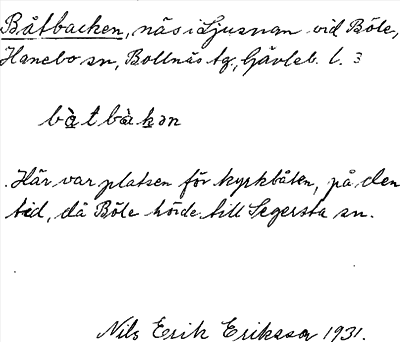 Båtbacken, näs i Ljusnan vid Böle,
Hanebo sn, Bollnäs tg, Gävleb. l. 3
bɑ̀tbàkən
Här var platsen för kyrkbåten, på den
tid, då Böle hörde till Segersta sn.
Nils Erik Eriksson 1931.